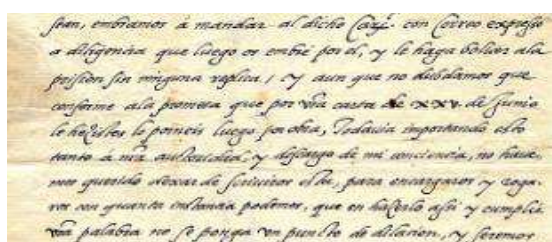 stan, embiamos á mandar al dicho Car.l con Correo expresso
a diligencia que luego os embie por el, y le haga bolver ala
prision sin ninguna replica, y aun que no dubdamos que
conforme ala promesa que por vra carta de XXV. de Junio
le hezistes lo porneis luego por obra, Todavia importando esto
tanto á mi auctoridad, y descargo de mi conciencia, no have-
mos querido dexar de scriviros esta, para encargaros y roga-
ros con quanta instancia podemos, que en hazerlo assi y cumplir
vra palabra no se ponga un puncto de dilacion, y seremos